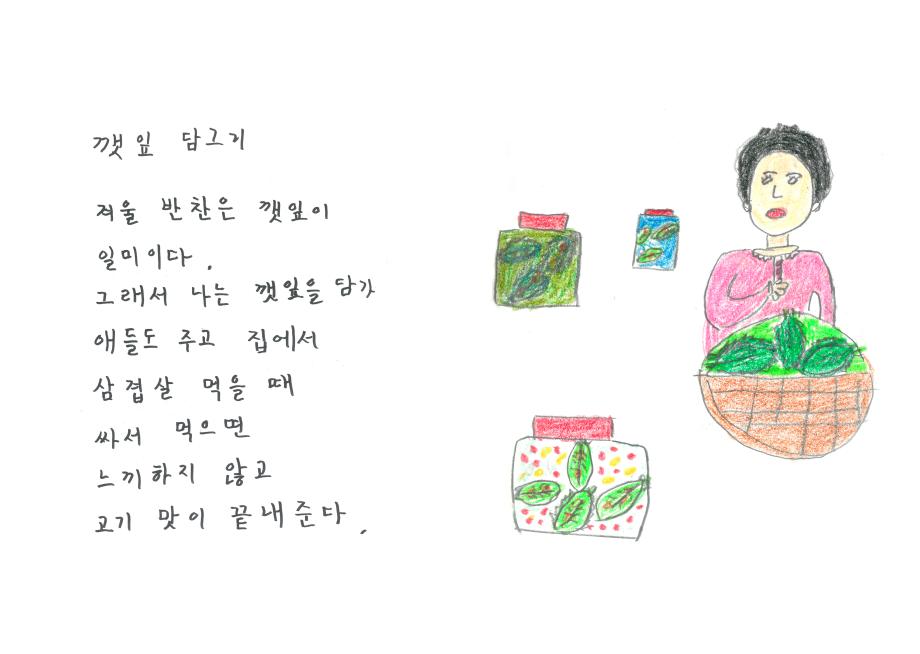 깻잎 담그기
겨울 반찬은 깻잎이
일미이다.
그래서 나는 깻잎을 담가
애들도 주고 집에서
삼겹살 먹을 때
싸서 먹으면
느끼하지 않고
고기 맛이 끝내준다.